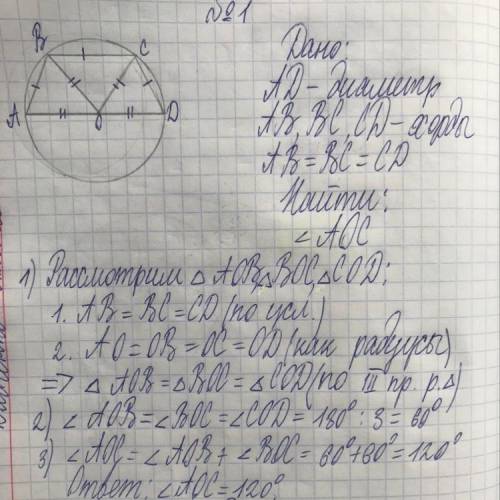 №1
B C
A O D
Дано:
AD - диаметр
AB, BC, CD - хорды
AB = BC = CD
Найти:
∠AOC
1) Рассмотрим △AOB, △BOC, △COD:
1. AB = BC = CD (по усл.)
2. AO = OB = OC = OD (как радиусы)
=> △AOB = △BOC = △COD (по III пр. р. △)
2) ∠AOB = ∠BOC = ∠COD = 180° : 3 = 60°
3) ∠AOC = ∠AOB + ∠BOC = 60° + 60° = 120°
Ответ: ∠AOC = 120°.